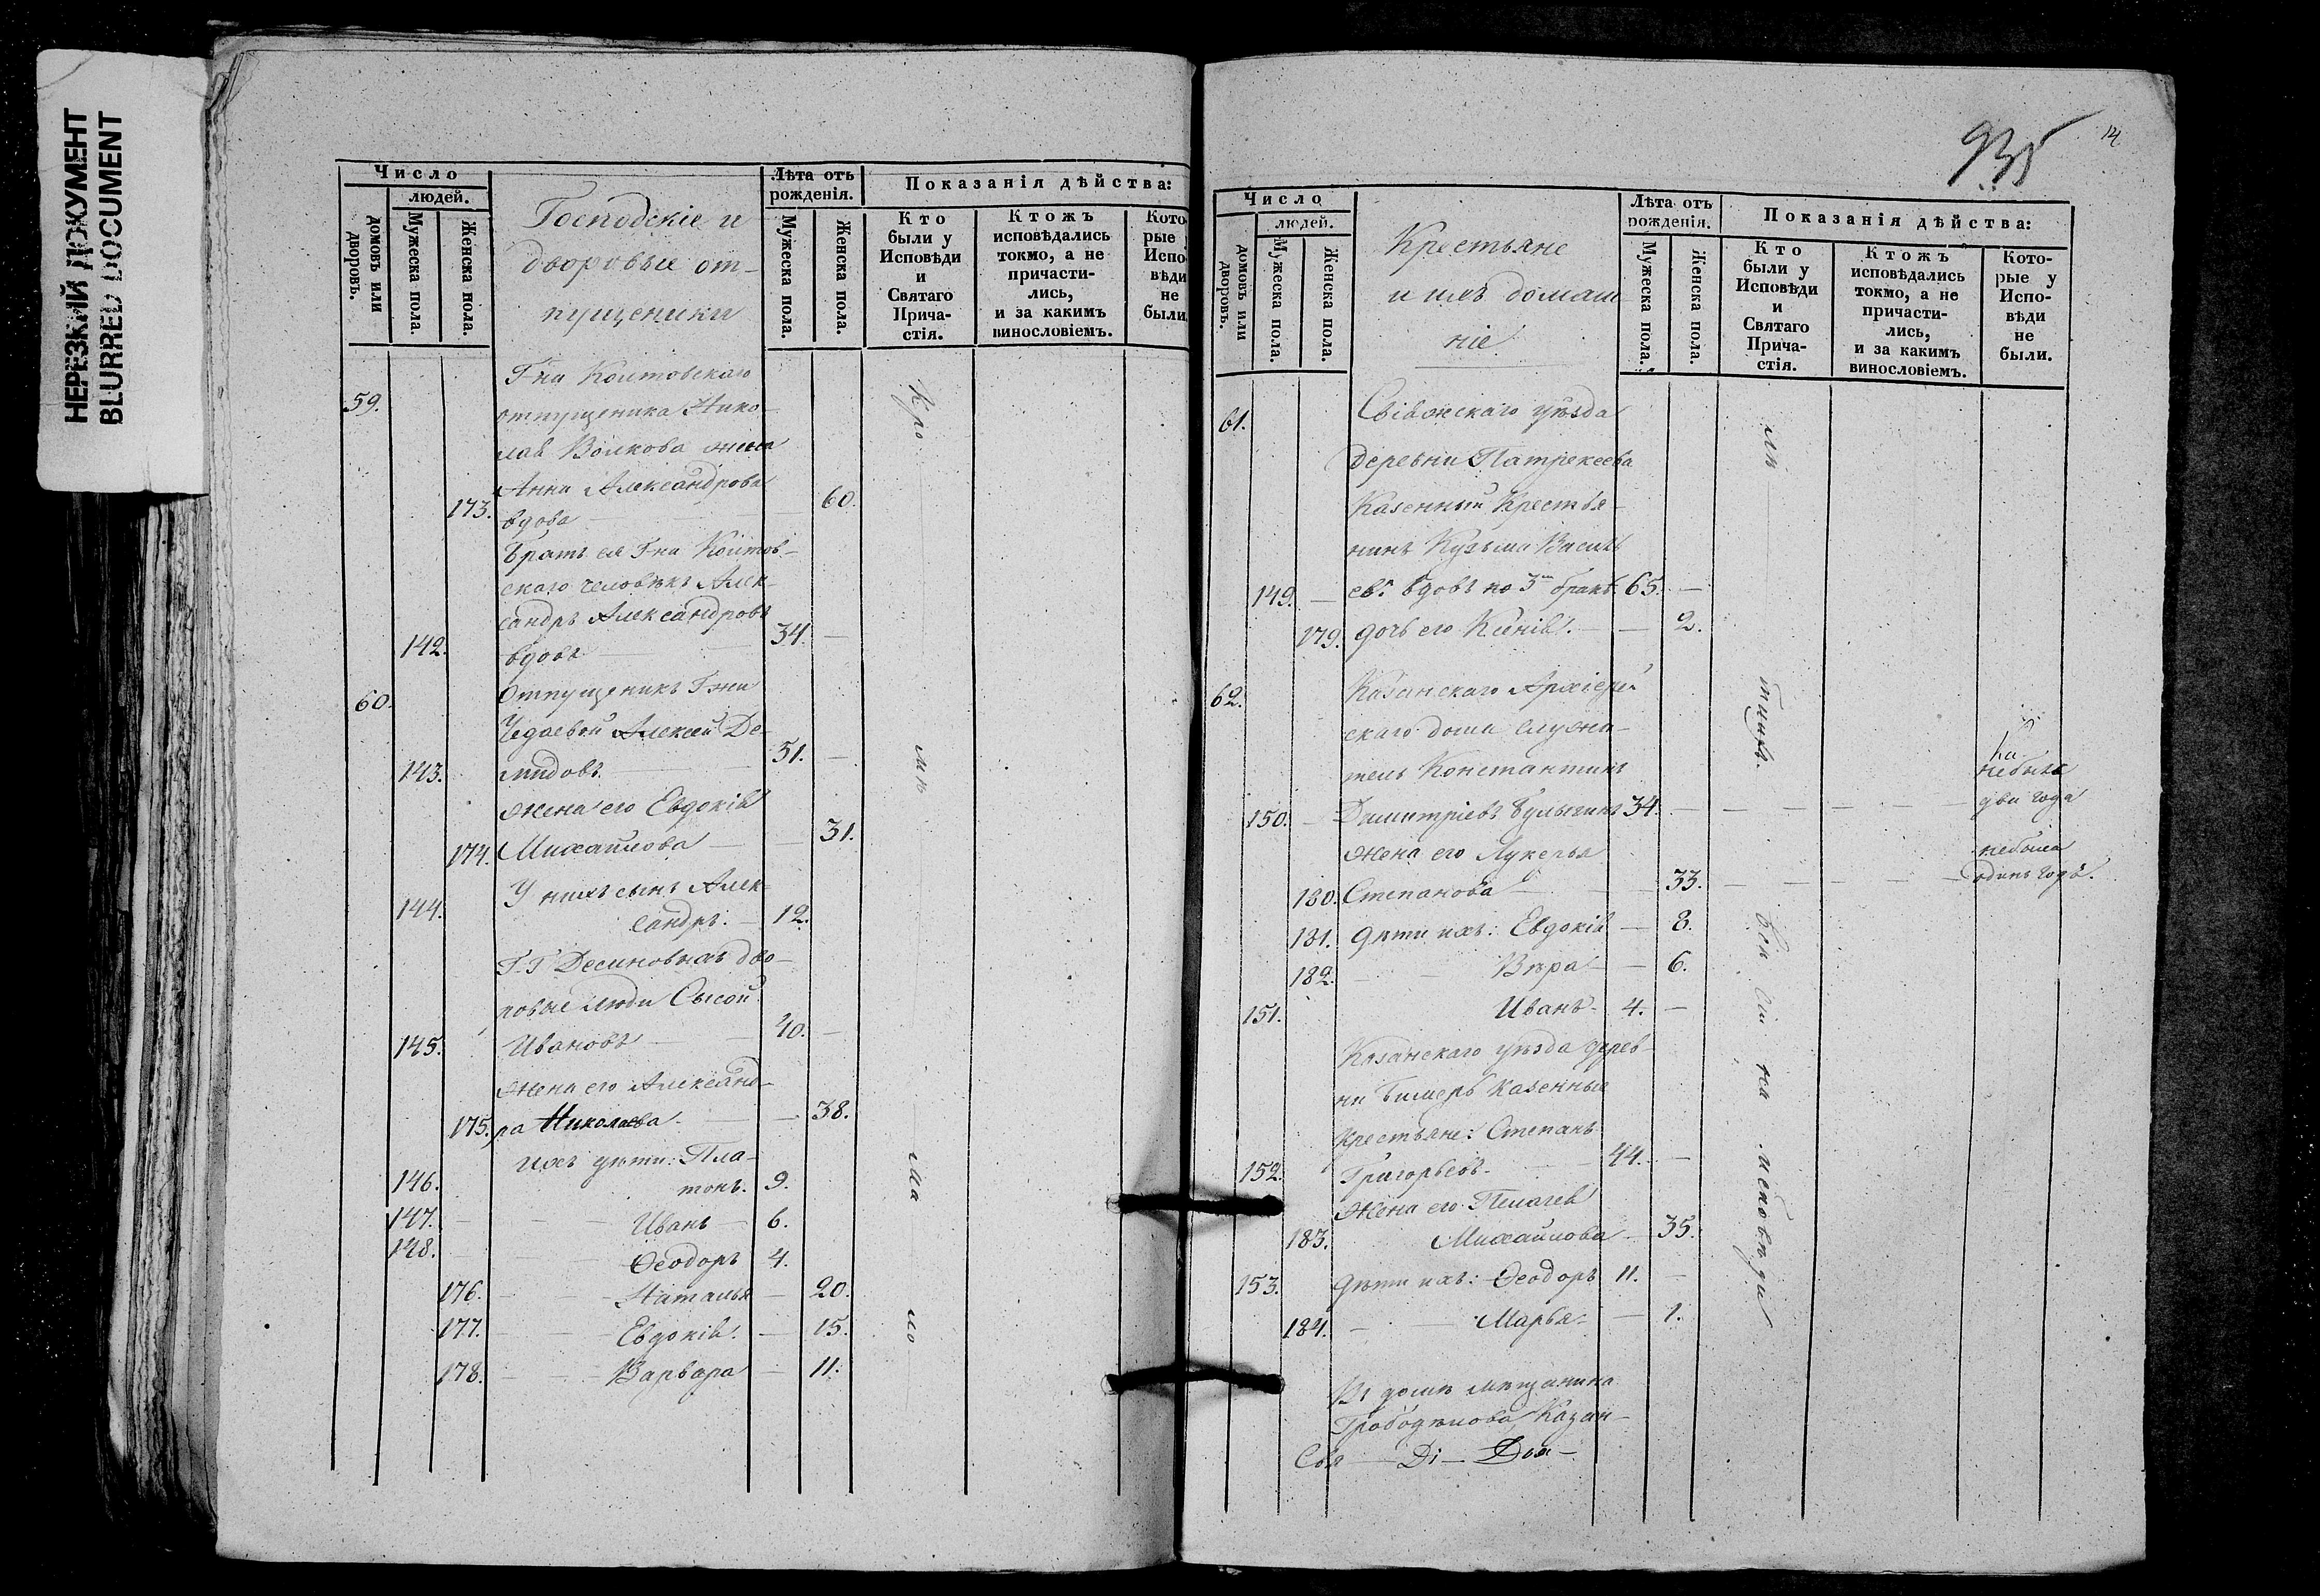 НЕРЕЗКИЙ ДОКУМЕНТ
BLURRED DOCUMENT
Число
людей.
домовъ или дворовъ.
Мужеска пола.
Женска пола.
Господскіе и
дворовые от-
пущеники
Лѣта отъ рожденія.
Мужеска пола.
Женска пола.
Показанія дѣйства:
Кто были у Исповѣди и Святаго Прича-стія.
Ктожъ исповѣдались токмо, а не причасти-лись, и за какимъ винословіемъ.
Кото рые Испо вѣди не были
Г-на Колтовскаго
59. отпущеника Нико-
лая Волкова жена
Анна Александрова
173. вдова 60.
Братъ ея Г-на Колтов-
скаго человѣкъ Алек-
сандръ Александровъ
142. вдовъ 34. —
60. Отпущеникъ Г-жи
Чедаевой Алексей Де-
143. мидовъ 51. —
Жена его Евдокія
174. Михайлова — — 31.
У нихъ сынъ Алек-
144. сандръ. — 12.
Г. Г. Десиновыхъ дво-
ровые люди Сысой
145. Ивановъ — 40. —
Жена его Александ-
175. ра Николаева — — 38.
Ихъ дѣти: Пла-
146. тонъ. 9.
147. — Иванъ — 6.
148. — Ѳеодоръ 4.
176. — Наталья — 20.
177. — Евдокія. — 15.
178. — Варвара — 11.
Кро
мѣ
ма
ло
935
14
Число
людей.
домовъ или дворовъ.
Мужеска пола.
Женска пола.
Крестьяне
и ихъ домаш
ніе
Лѣта отъ рожденія.
Мужеска пола.
Женска пола.
Показанія дѣйства:
Кто были у Исповѣди и Святаго Прича-стія.
Ктожъ исповѣдались токмо, а не причасти-лись, и за какимъ винословіемъ.
Кото-рые у Испо-вѣди не были.
61. Свіяжскаго уѣзда
деревни Патрекеева
Казенный Крестья-
нинъ Кузьма Василь
149. — евъ вдовъ по 3 бракѣ. 65. —
179. дочь его Ксенія. — — 2.
62. Казанскаго Архіерей
скаго дома служи-
тель Константинъ
150. — Димитріевъ Булыгинъ 34. — — — —
небылъ
два года
жена его Лукерья
180. Степанова — — 33. — — —
небыла
одинъ годъ.
181. дѣти ихъ: Евдокія — 8.
182. — Вѣра — — 6.
151. Иванъ — 4. —
Казанскаго уѣзда дерев-
ни Бимерь казенные
крестьяне: Степанъ
152. Григорьевъ. — 44. —
Жена его Пелагея
183. Михайлова — 35.
153. дѣти ихъ: Ѳеодоръ 11. —
184. — Марья — — 1.
Въ домѣ мѣщанина
Грободелова Казан-
Свя — Ді — Доя —
лѣ
тнихъ.
всѣ
на
исповѣди